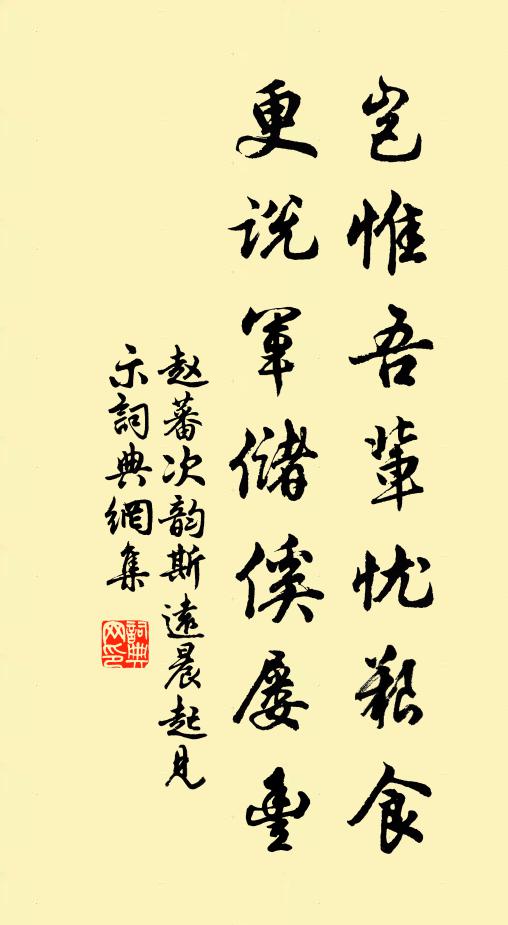 岂惟吾辈忧艰食
更说军储傒屡丰
赵蕃次韵斯遠晨起见
示詞典網集
詞典网印